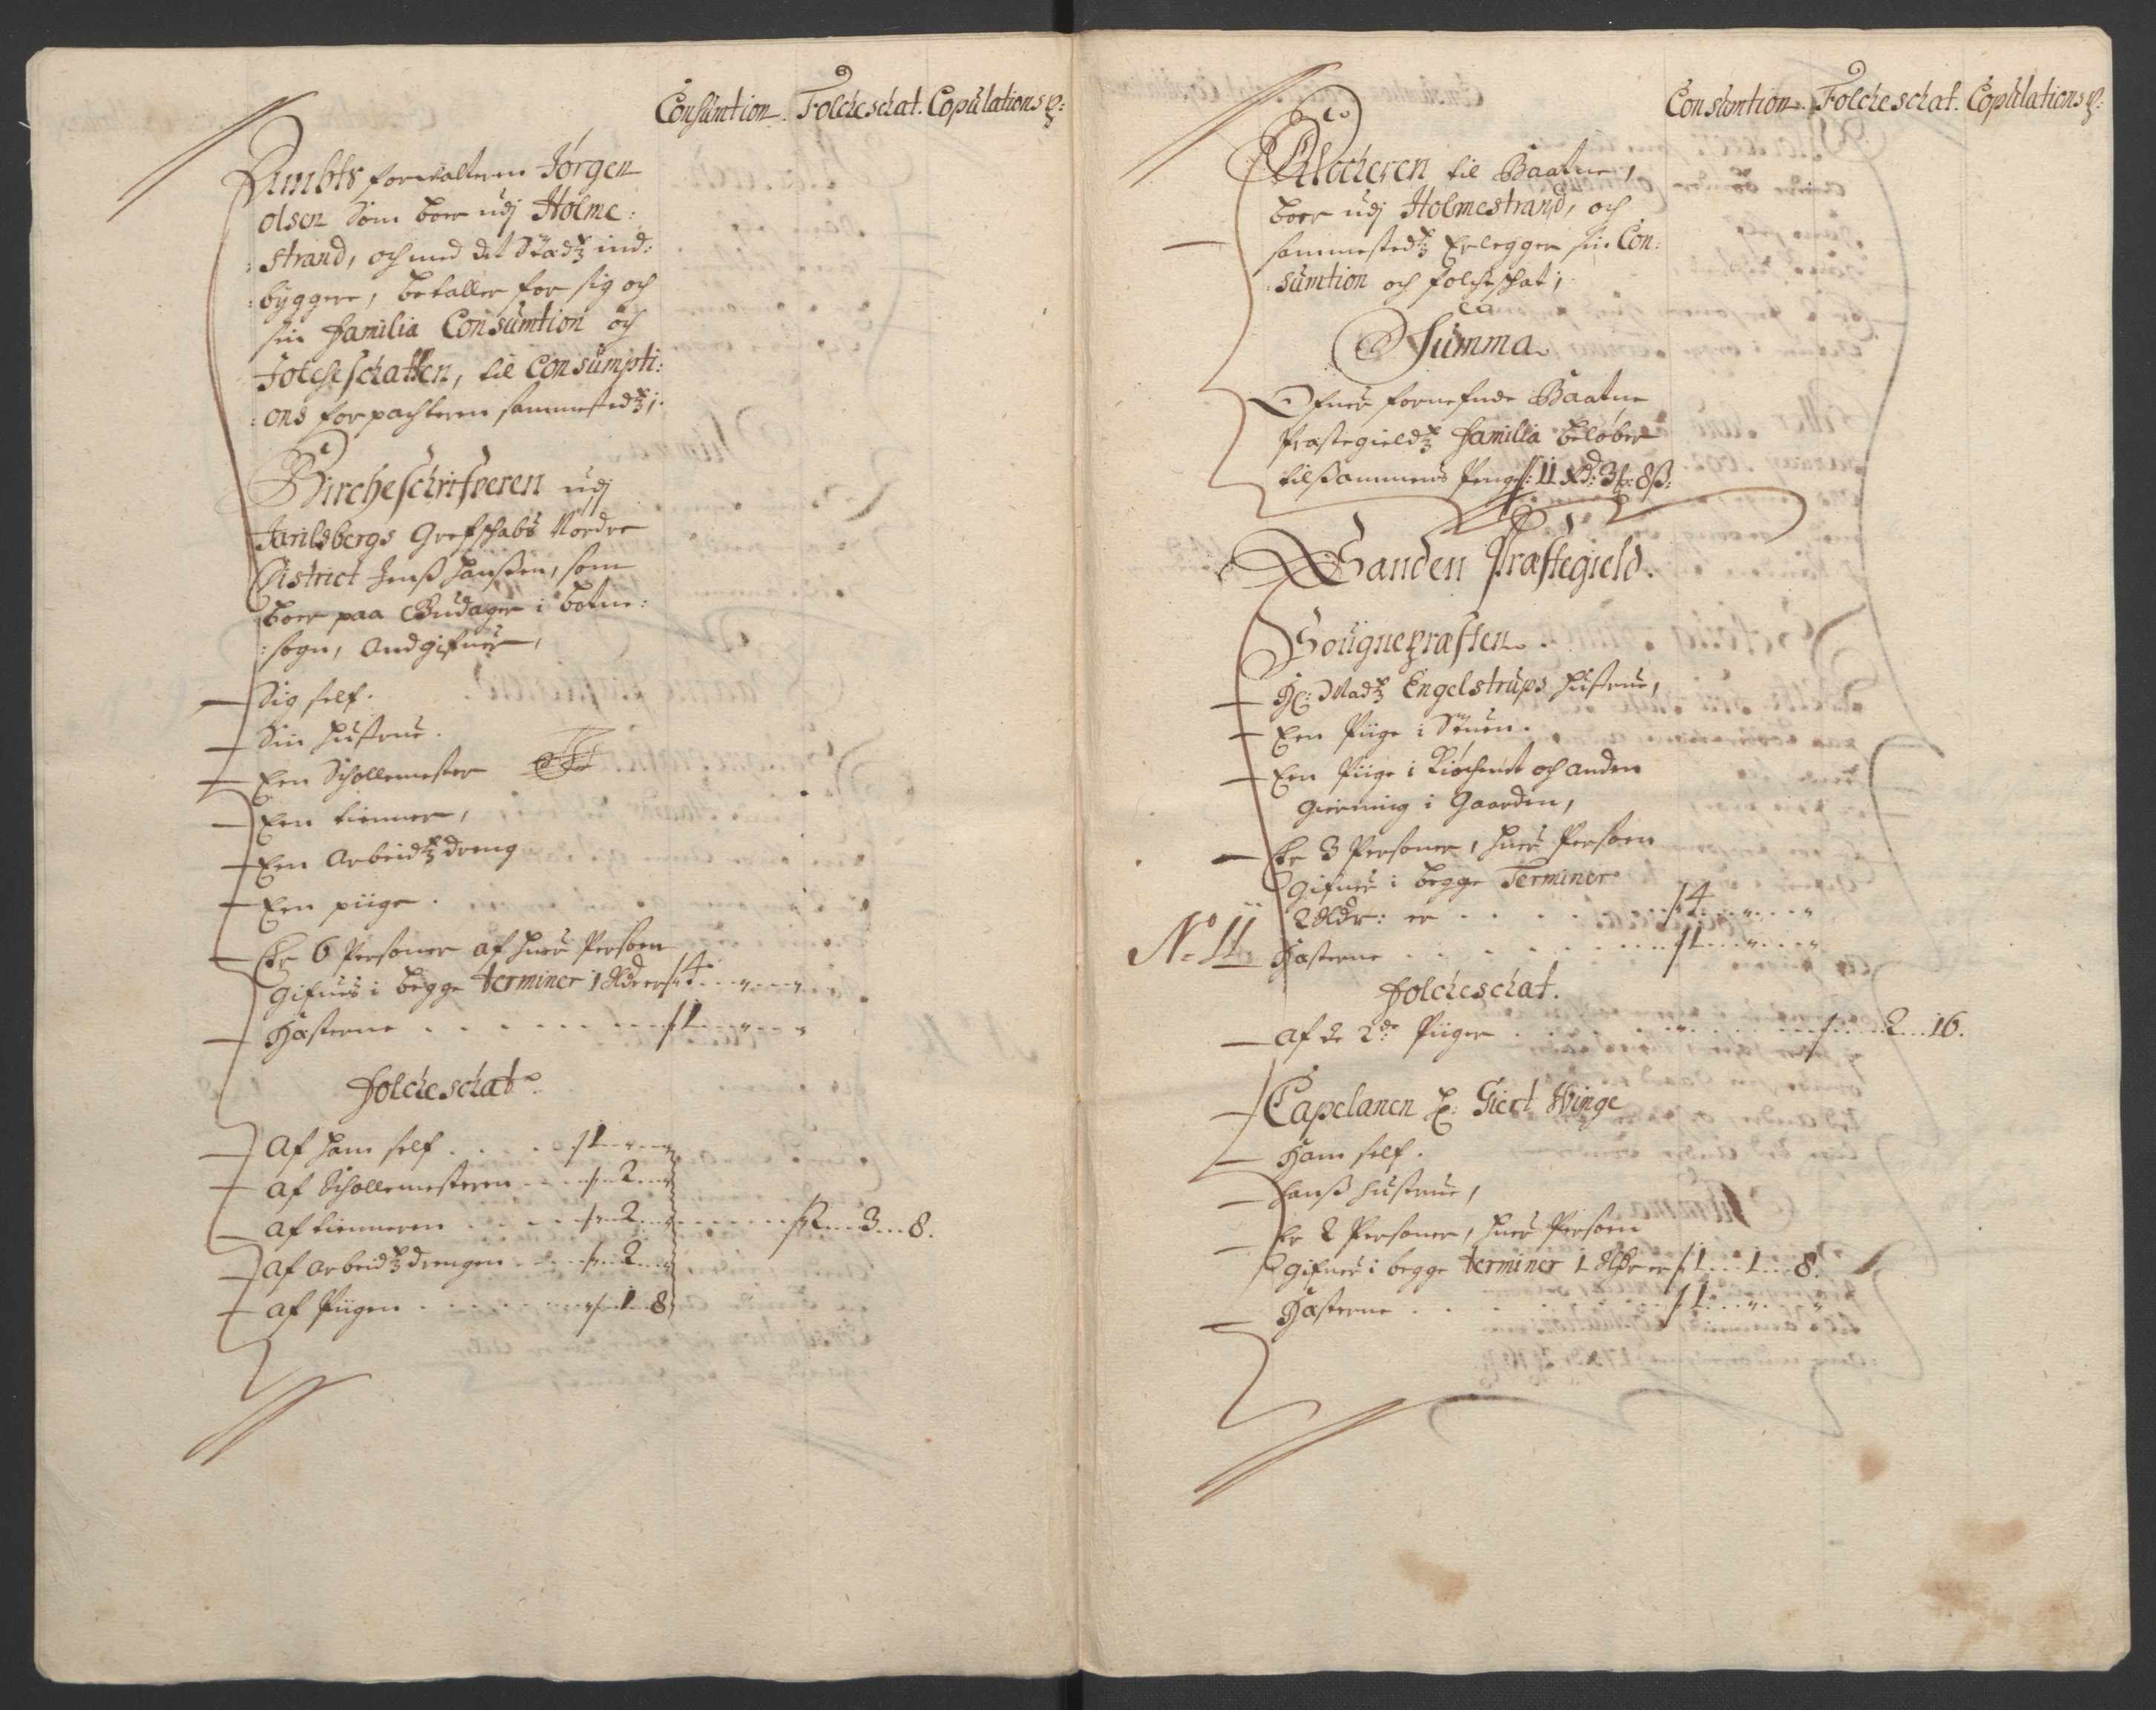 Consumtion. Folcheschat. Copulations P:
Ambts forvalteren Jørgen
olsen Som boer udj Holme:
:strand, och med det Stædz ind:
:byggere, betaller for sig och
sin Familia Consumtion och
Folcheschatten, til Consumpti:
:ons forpachteren sammestedz;
Bircheschrifveren udj
Jarlsbergs Grefschabs Nordre
District Jenß Hanßen, som
boer paa Gudager i botne:
:sogn, Andgifuer,
Sig self.
Sin hustrue.
Een Schollemester
Een tienner,
Een Arbeidz dreng
Een piige.
Er 6 Personer af huer Persoen
Gifues i begge terminer 1 Rdr er 4 „ „
Hæsterne 1 „ „
Folcheschat.
Af ham self 1 „ „
Af Schollemesteren „ 2 „
Af tienneren „ 2 „ 2 3 8.
Af Arbeidzdrengen „ 2 „
Af Piigen „ 1 8
Consumtion. Folcheschat. Copulations P:
Klocheren til Baatne,
boer udj Holmestrand, och
sammestedz Erlegger sin Con:
:sumtion och folcheschat;
Summa
Ofuer fornefnde Baatne
Præstegieldz Familia beløber
tilsammens Penge 11 Rd: 3 ß: 8 ß:
Sanden Præstegield.
Sougnepræsten.
Hr: Madz Engelstrups hustrue,
Een Piige i Stuen.
Een Piige i Kiøchenet och anden
Gierning i Gaarden,
Er 3 Personer, huer Persoen
Gifues i begge Terminer
2 Rdr: er 4 „ „
No 11. Hæsterne 1 „ „
Folcheschat.
Af de 2de Piiger „ 2 16.
Capelanen Hr: Giert Winge
Ham self.
Hanß hustrue,
Er 2 Personer, huer Persoen
Gifues i begge terminer 1 Rdr er 1 1 8.
Hæsterne 1 „ „